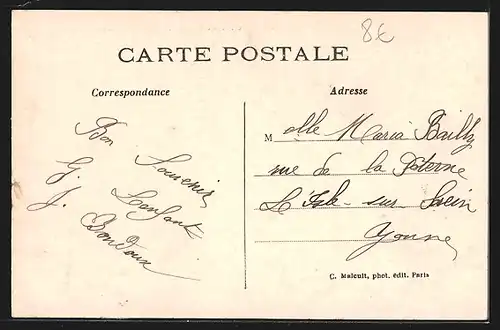 8€
CARTE POSTALE
Correspondance
Adresse
Bon Souvenir
G. Lenfant
J. Bondoux
Melle Maria Bailly
rue de la Poterne
L'Isle-sur Serein
Yonne
C. Malcuit, phot. édit. Paris